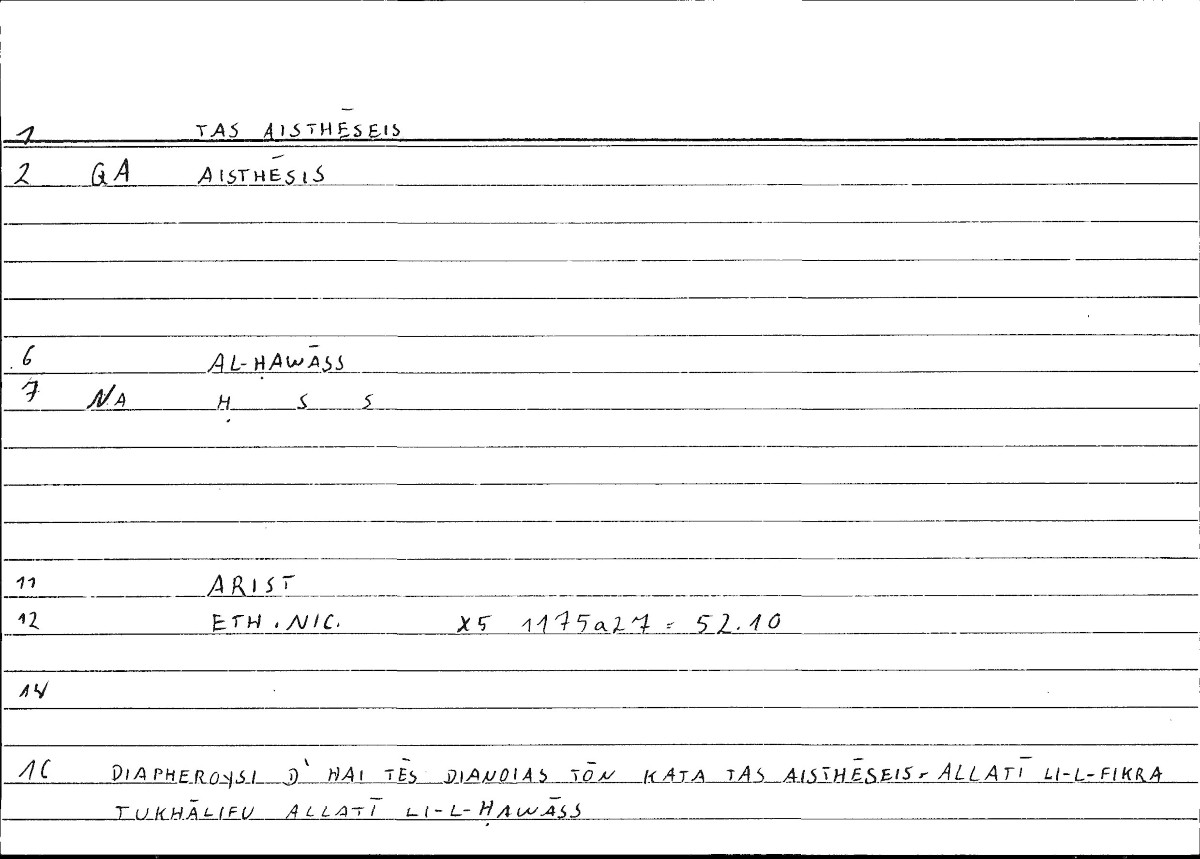 1 TAS AISTHĒSEIS
2 QA AISTHĒSIS
6 AL-ḤAWĀSS
7 NA Ḥ S S
11 ARIST
12 ETH. NIC. X5 1175a27 = 52.10
14
16 DIAPHEROYSI D' HAI TĒS DIANOIAS TŌN KATA TAS AISTHĒSEIS = ALLATĪ LI-L-FIKRA
TUKHĀLIFU ALLATĪ LI-L-ḤAWĀSS